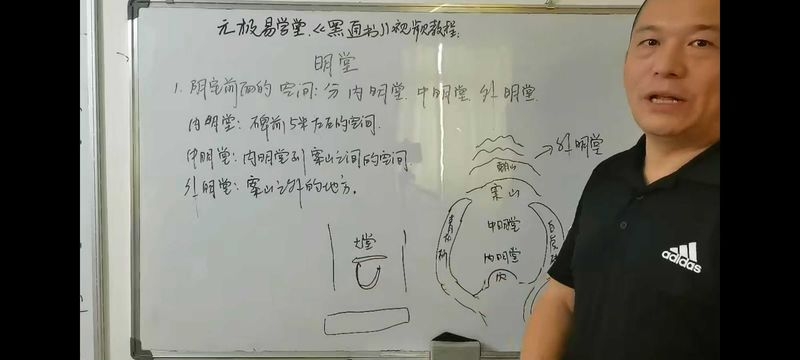 元极易学堂《黑通书》视频教程.
明堂
1. 阴宅前面的空间: 分内明堂. 中明堂. 外明堂.
内明堂: 碑前5米左右的空间.
中明堂: 内明堂到案山之间的空间.
外明堂: 案山之外的地方.
朝山
外明堂
案山
中明堂
内明堂
穴
青龙砂
白虎砂
adidas